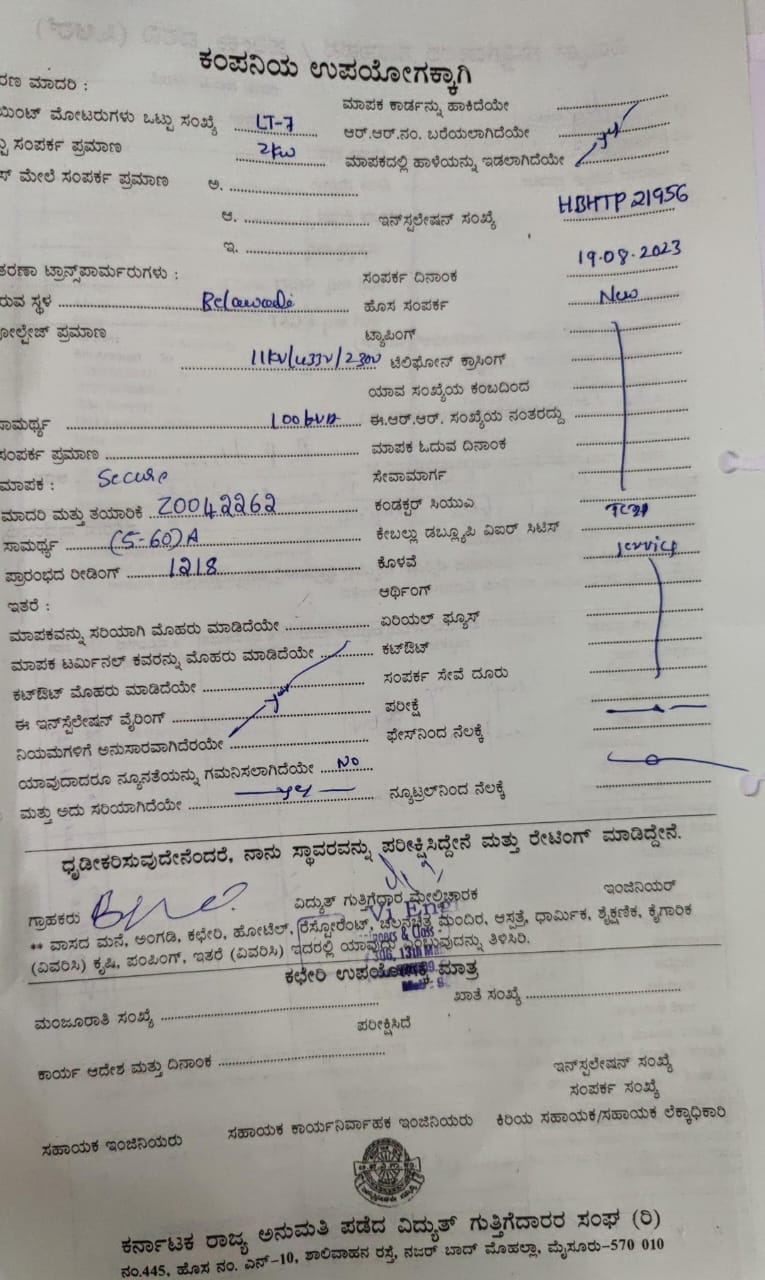 ಕಂಪನಿಯ ಉಪಯೋಗಕ್ಕಾಗಿ
ರಣ ಮಾದರಿ :
ಮಾಪಕ ಕಾರ್ಡನ್ನು ಹಾಕಿದೆಯೇ
ಯಿಂಟ್ ಮೋಟರುಗಳು ಒಟ್ಟು ಸಂಖ್ಯೆ LT-7 ಆರ್.ಆರ್.ನಂ. ಬರೆಯಲಾಗಿದೆಯೇ
ಸಂಪರ್ಕ ಪ್ರಮಾಣ 2kw ಮಾಪಕದಲ್ಲಿ ಹಾಳೆಯನ್ನು ಇಡಲಾಗಿದೆಯೇ
ಸ್ ಮೇಲೆ ಸಂಪರ್ಕ ಪ್ರಮಾಣ ಅ.
ಆ. ಇನ್‌ಸ್ಪಲೇಷನ್ ಸಂಖ್ಯೆ HBHTP 21956
ಇ.
ತರಣಾ ಟ್ರಾನ್ಸ್‌ಪಾರ್ಮರುಗಳು : ಸಂಪರ್ಕ ದಿನಾಂಕ 19.08.2023
ರುವ ಸ್ಥಳ Belawadi ಹೊಸ ಸಂಪರ್ಕ New
ೋಲ್ಟೇಜ್ ಪ್ರಮಾಣ ಟ್ಯಾಪಿಂಗ್
11kv/433v/230v ಟೆಲಿಫೋನ್ ಕ್ರಾಸಿಂಗ್
ಯಾವ ಸಂಖ್ಯೆಯ ಕಂಬದಿಂದ
ಾಮರ್ಥ್ಯ ಈ.ಆರ್.ಆರ್. ಸಂಖ್ಯೆಯ ನಂತರದ್ದು
ಸಂಪರ್ಕ ಪ್ರಮಾಣ ಮಾಪಕ ಓದುವ ದಿನಾಂಕ
ಮಾಪಕ : Secure ಸೇವಾಮಾರ್ಗ
ಮಾದರಿ ಮತ್ತು ತಯಾರಿಕೆ Z0042262 ಕಂಡಕ್ಟರ್ ಸಿಯುಎ
ಸಾಮರ್ಥ್ಯ (5-60)A ಕೇಬಲ್ಲು ಡಬ್ಲ್ಯೂಪಿ ವಿಐರ್ ಸಿಟಿಸ್
ಪ್ರಾರಂಭದ ರೀಡಿಂಗ್ 1218 ಕೊಳವೆ service
ಇತರೆ : ಆರ್ಥಿಂಗ್
ಮಾಪಕವನ್ನು ಸರಿಯಾಗಿ ಮೊಹರು ಮಾಡಿದೆಯೇ ಏರಿಯಲ್ ಫ್ಯೂಸ್
ಮಾಪಕ ಟರ್ಮಿನಲ್ ಕವರನ್ನು ಮೊಹರು ಮಾಡಿದೆಯೇ ಕಟ್‌ಔಟ್
ಕಟ್‌ಔಟ್ ಮೊಹರು ಮಾಡಿದೆಯೇ ಸಂಪರ್ಕ ಸೇವೆ ದೂರು
ಈ ಇನ್‌ಸ್ಪೆಲೇಷನ್ ವೈರಿಂಗ್ ಪರೀಕ್ಷೆ
ನಿಯಮಗಳಿಗೆ ಅನುಸಾರವಾಗಿದೆರಯೇ ಫೇಸ್‌ನಿಂದ ನೆಲಕ್ಕೆ
ಯಾವುದಾದರೂ ನ್ಯೂನತೆಯನ್ನು ಗಮನಿಸಲಾಗಿದೆಯೇ No
ಮತ್ತು ಅದು ಸರಿಯಾಗಿದೆಯೇ yes ನ್ಯೂಟ್ರಲ್‌ನಿಂದ ನೆಲಕ್ಕೆ
ಧೃಡೀಕರಿಸುವುದೇನೆಂದರೆ, ನಾನು ಸ್ಥಾವರವನ್ನು ಪರೀಕ್ಷಿಸಿದ್ದೇನೆ ಮತ್ತು ರೇಟಿಂಗ್ ಮಾಡಿದ್ದೇನೆ.
ಗ್ರಾಹಕರು ವಿದ್ಯುತ್ ಗುತ್ತಿಗೆದಾರ ಮೇಲ್ವಿಚಾರಕ ಇಂಜಿನಿಯರ್
** ವಾಸದ ಮನೆ, ಅಂಗಡಿ, ಕಛೇರಿ, ಹೋಟೆಲ್, ರೆಸ್ಟೋರೆಂಟ್, ಚಲನಚಿತ್ರ ಮಂದಿರ, ಆಸ್ಪತ್ರೆ, ಧಾರ್ಮಿಕ, ಶೈಕ್ಷಣಿಕ, ಕೈಗಾರಿಕ
(ವಿವರಿಸಿ) ಕೃಷಿ, ಪಂಪಿಂಗ್, ಇತರೆ (ವಿವರಿಸಿ) ಇದರಲ್ಲಿ ಯಾವುದು ಎಂಬುವುದನ್ನು ತಿಳಿಸಿರಿ.
ಕಛೇರಿ ಉಪಯೋಗಕ್ಕೆ ಮಾತ್ರ
ಮಂಜೂರಾತಿ ಸಂಖ್ಯೆ ಖಾತೆ ಸಂಖ್ಯೆ
ಪರೀಕ್ಷಿಸಿದೆ
ಕಾರ್ಯ ಆದೇಶ ಮತ್ತು ದಿನಾಂಕ
ಇನ್‌ಸ್ಪಲೇಷನ್ ಸಂಖ್ಯೆ
ಸಂಪರ್ಕ ಸಂಖ್ಯೆ
ಸಹಾಯಕ ಇಂಜಿನಿಯರು ಸಹಾಯಕ ಕಾರ್ಯನಿರ್ವಾಹಕ ಇಂಜಿನಿಯರು ಕಿರಿಯ ಸಹಾಯಕ/ಸಹಾಯಕ ಲೆಕ್ಕಾಧಿಕಾರಿ
ಕರ್ನಾಟಕ ರಾಜ್ಯ ಅನುಮತಿ ಪಡೆದ ವಿದ್ಯುತ್ ಗುತ್ತಿಗೆದಾರರ ಸಂಘ (ರಿ)
ನಂ.445, ಹೊಸ ನಂ. ಎನ್-10, ಶಾಲಿವಾಹನ ರಸ್ತೆ, ನಜರ್ ಬಾದ್ ಮೊಹಲ್ಲಾ, ಮೈಸೂರು-570 010